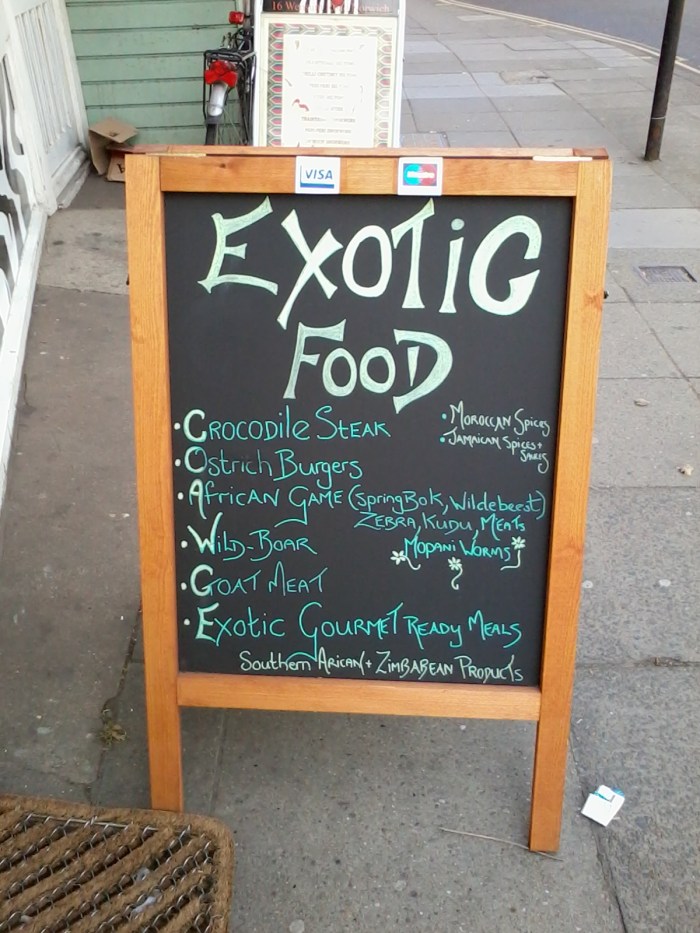 16 We Norwich
VISA
EXOTiC
FOOD
• CROCODile STEAK
• MOROCCAN Spices
• JAMAICAN SPiCES +
• Ostrich Burgers
• AfriCAN GAME (SpringBok, Wildebeest)
ZEBRA, KUDU, MEATs
• WilD-BOAR
MOPANi WORMS
• GOAT MEAT
• Exotic Gourmet READy MEALS
Southern ARiCAN + ZiMBABEAN PRODUCTs